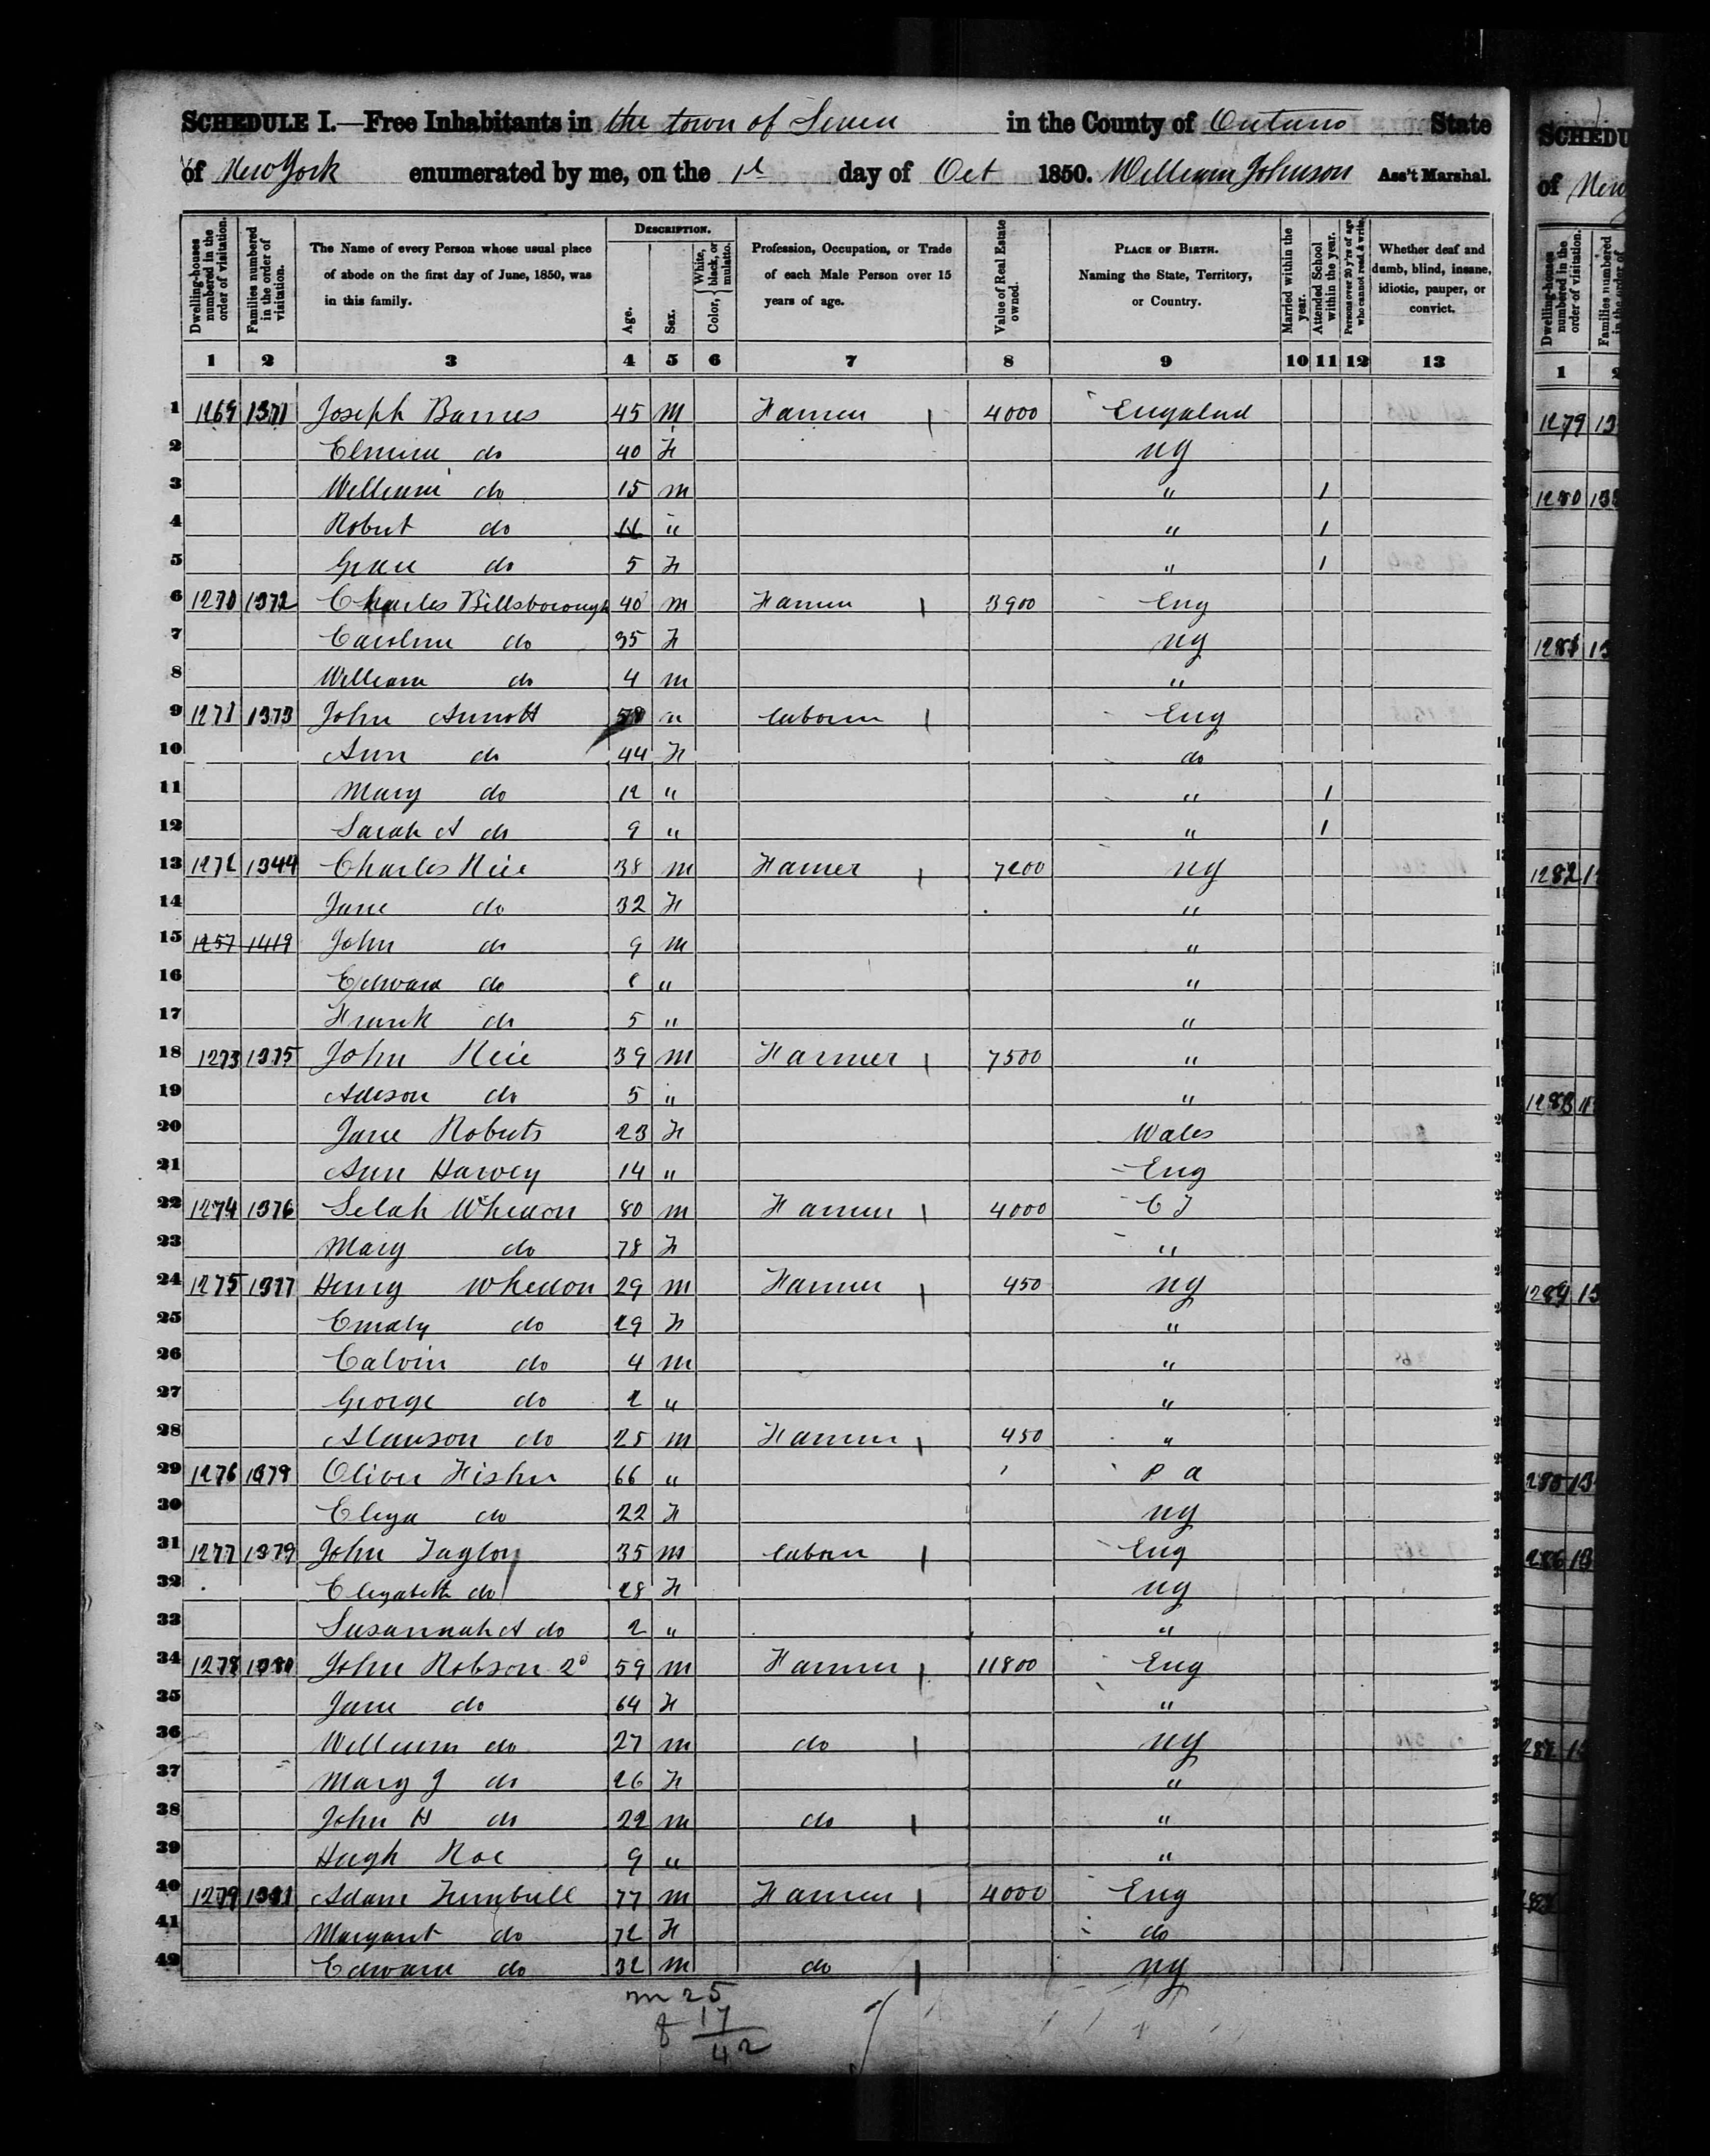 SCHEDULE I.—Free Inhabitants in the town of Seneca in the County of Ontario State
of New York enumerated by me, on the 1st day of Oct 1850. William Johnson Ass't Marshal.
Dwelling-houses numbered in the order of visitation.
Families numbered in the order of visitation.
The Name of every Person whose usual place of abode on the first day of June, 1850, was in this family.
DESCRIPTION.
Age.
Sex.
Color, White, black, or mulatto.
Profession, Occupation, or Trade of each Male Person over 15 years of age.
Value of Real Estate owned.
PLACE OF BIRTH. Naming the State, Territory, or Country.
Married within the year.
Attended School within the year.
Persons over 20 y'rs of age who cannot read & write.
Whether deaf and dumb, blind, insane, idiotic, pauper, or convict.
1 2 3 4 5 6 7 8 9 10 11 12 13
1 1269 1371 Joseph Barnes 45 M Farmer 4000 Engalnd
2 Elmira do 40 F NY
3 William do 15 m " 1
4 Robert do 11 " " 1
5 Grace do 5 F " 1
6 1270 1372 Charles Billsborough 40 m Farmer 3900 Eng
7 Caroline do 35 F NY
8 William do 4 m "
9 1271 1373 John Arnott " laborer Eng
10 Ann do 44 F do
11 Mary do 12 " " 1
12 Sarah A do 9 " " 1
13 1272 1344 Charles Rice 38 m Farmer 7200 NY
14 Jane do 32 F "
15 1257 1419 John do 9 m "
16 Edward do 8 " "
17 Frank do 5 " "
18 1273 1375 John Rice 39 m Farmer 7500 "
19 Adison do 5 " "
20 Jane Roberts 23 F Wales
21 Ann Harvey 14 " Eng
22 1274 1376 Selah Whedon 80 m Farmer 4000 CT
23 Mary do 78 F "
24 1275 1377 Henry Whedon 29 m Farmer 450 NY
25 Emaly do 29 F "
26 Calvin do 4 m "
27 George do 2 " "
28 Alanson do 25 m Farmer 450 "
29 1276 1378 Oliver Fisher 66 " Pa
30 Eliza do 22 F NY
31 1277 1379 John Taylor 35 m laborer Eng
32 Elizabeth do 28 F NY
33 Susannah A do 2 " "
34 1278 1380 John Robson 2d 59 m Farmer 11800 Eng
35 Jane do 64 F "
36 William do 27 m do NY
37 Mary J do 26 F "
38 John H do 22 m do "
39 Hugh Roe 9 " "
40 1279 1381 Adam Turnbull 77 m Farmer 4000 Eng
41 Margaret do 72 F do
42 Edward do 32 m do NY
m 25
f 17
42
SCHEDU
of New
Dwelling-houses numbered in the order of visitation.
Families numbered in the order of
1 2
1279 13
1280 138
1281 13
1282 1
1283
1284 13